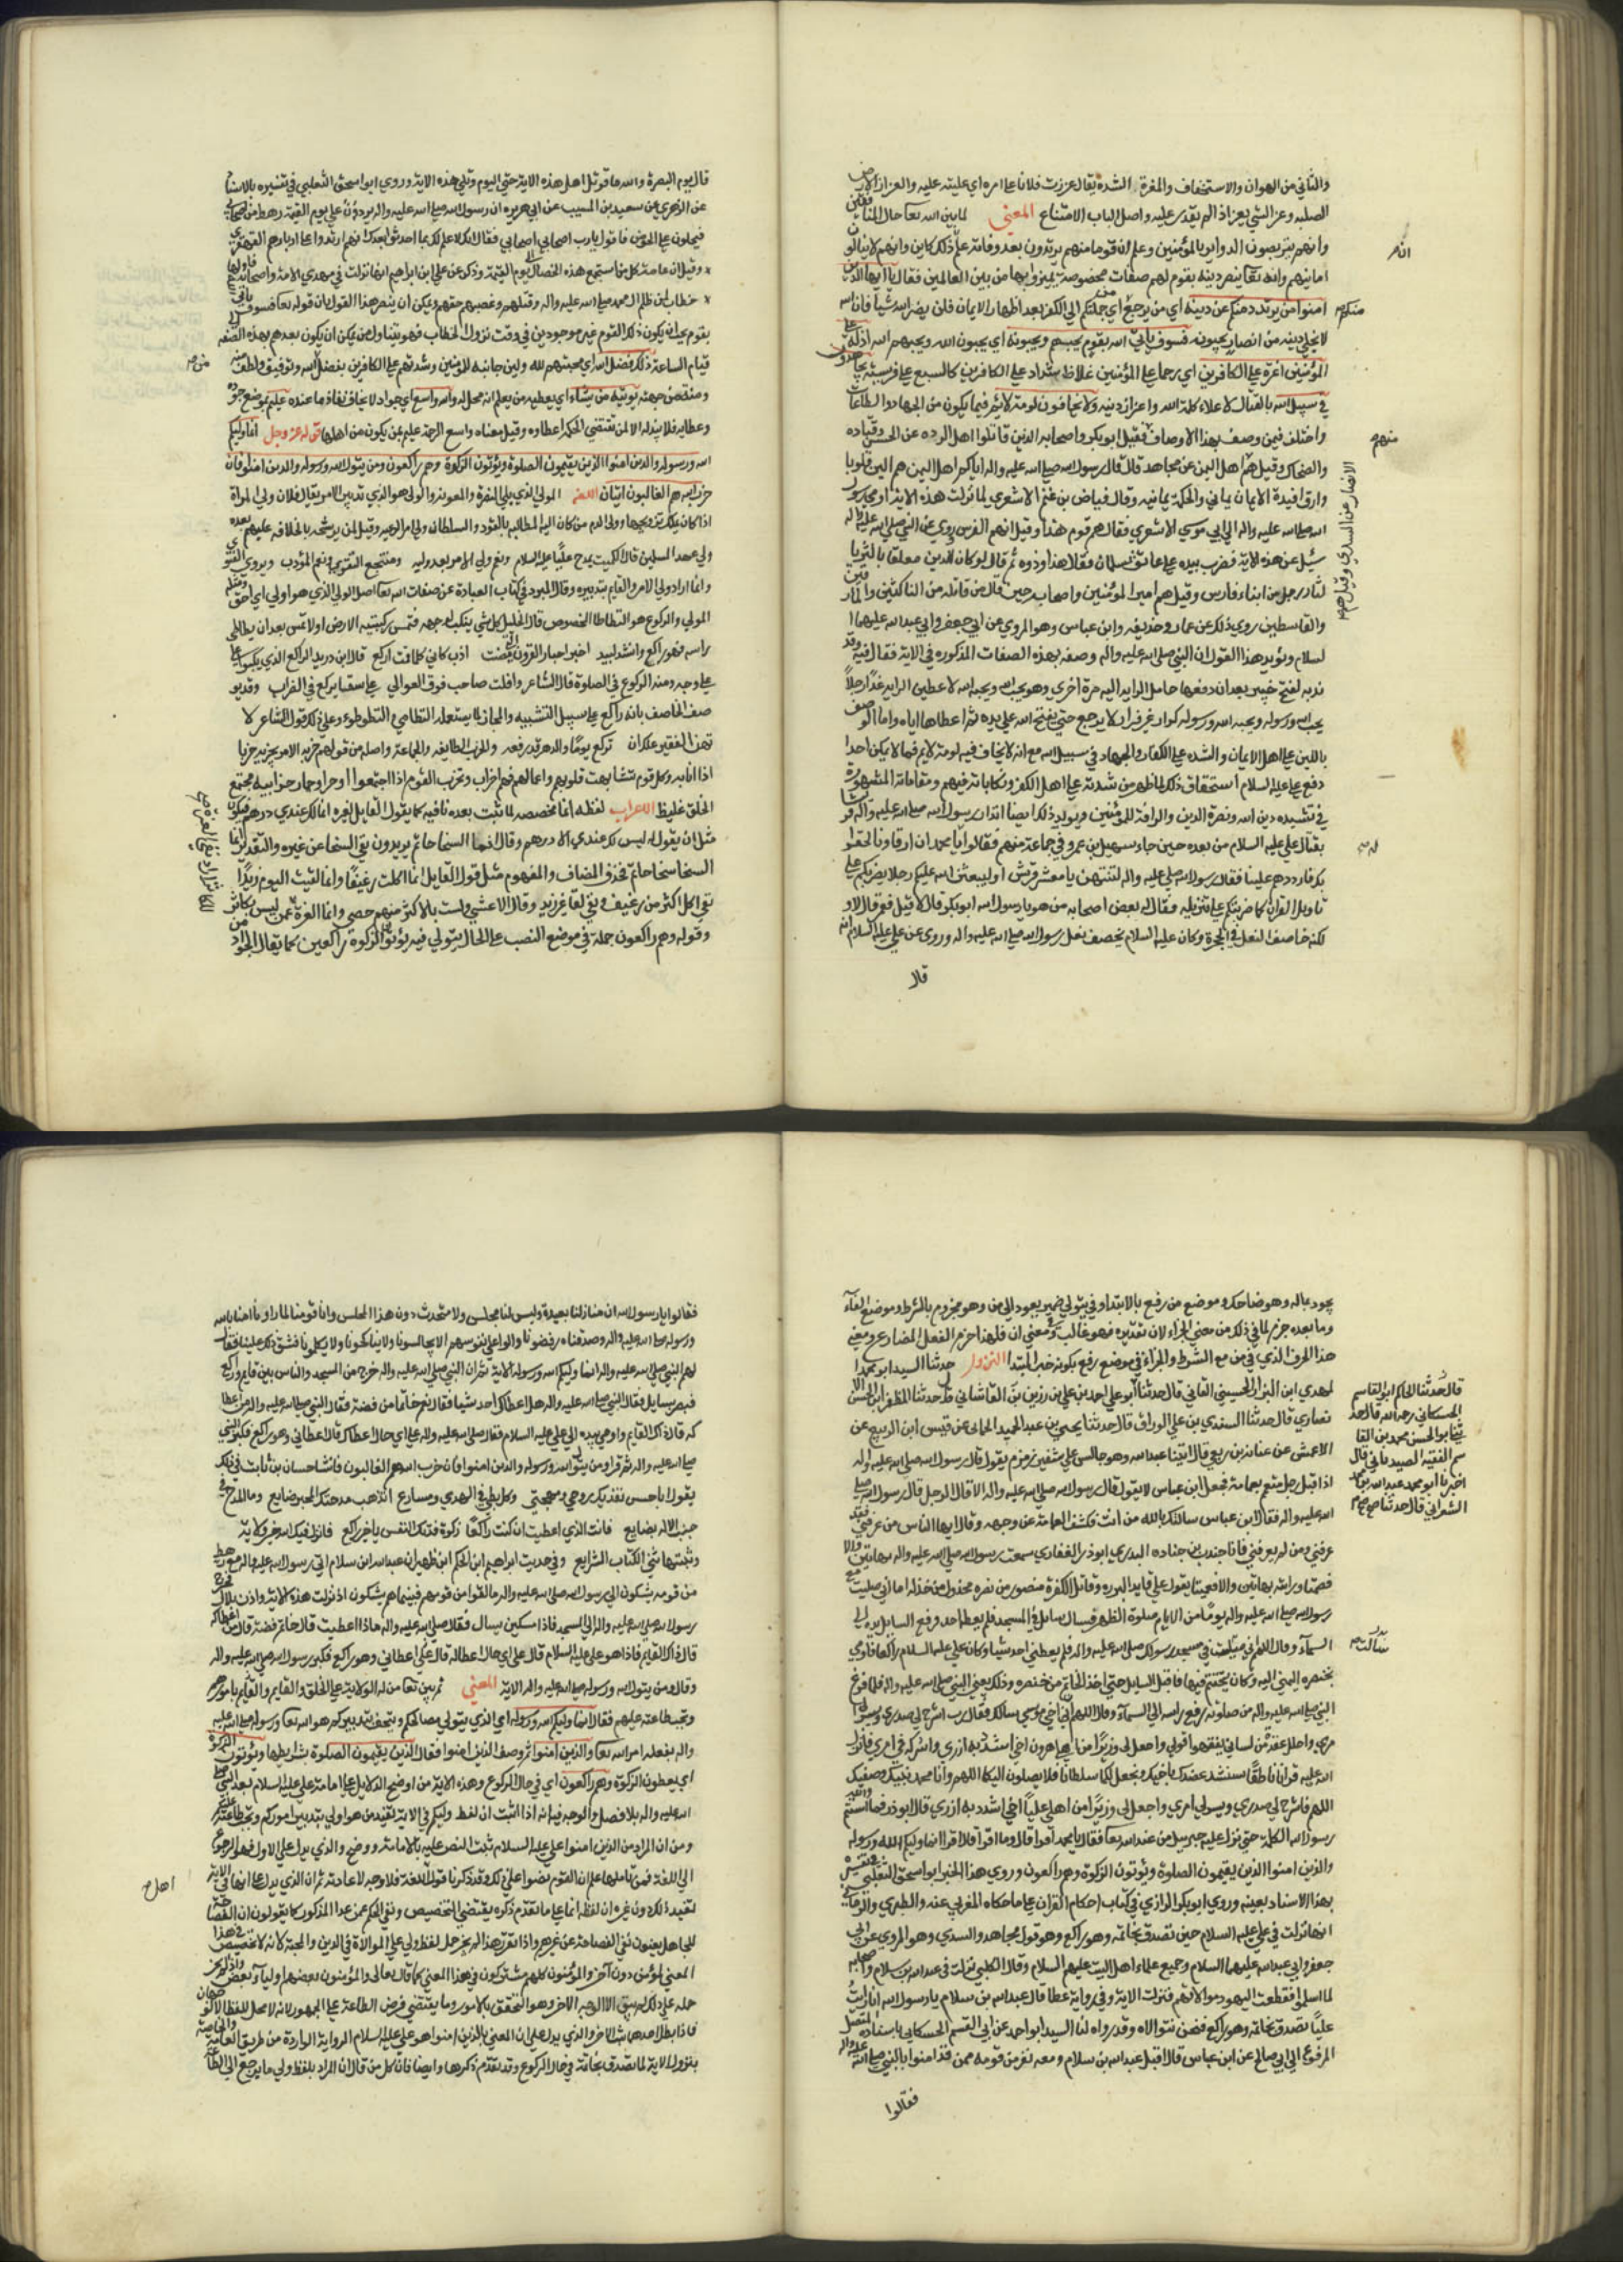 والثاني من الهوان والاستخفاف والمعزة الشدة يقال عززت فلانا على امره اي غلبته عليه والعزاز الارض
الصلبه وعز الشي يعز اذا لم يقدر عليه واصل الباب الامتناع المعني لما بين الله تعا حال المنافقين
وانهم يتربصون الدواير بالمؤمنين وعلم ان قوما منهم يرتدون بعد وفاته علم ذلك كاين وانهم لا ينالون
امانيهم والله تعا ينصر دينه بقوم لهم صفات مخصوصة تميزوا بها من بين العالمين فقال يا ايها الذين
امنوا من يرتد منكم عن دينه اي من يرجع اي جملتكم الي الكفر بعد اظهار الايمان فلن يضر الله شيا فان الله
لا يخلي دينه من انصار يحبونه فسوف ياتي الله بقوم يحبهم ويحبونه اي يحبون الله ويحبهم الله اذلة علي
المؤمنين اعزة علي الكافرين اي رحما علي المؤمنين غلاظ شداد علي الكافرين كالسبع علي فريسته يجاهدون
في سبيل الله بالقتال لاعلاء كلمة الله واعزاز دينه ولا يخافون لومة لائم فيما يكون من الجهاد والطاعات
واختلف فيمن وصف بهذا الاوصاف فقيل ابو بكر واصحابه الذين قاتلوا اهل الرده عن الحسن وقتاده
والضحاك وقيل هم اهل اليمن عن مجاهد قال قال رسول الله صلي الله عليه واله اياكم اهل اليمن هم الين قلوبا
وارق افيدة الايمان يماني والحكمة يمانيه وقال عياض بن غنم الاشعري لما نزلت هذه الاية اوما رسول
الله صلي الله عليه واله الي ابي موسي الاشعري فقال هم قوم هذا وقيل انهم الفرس روي عن النبي صلي الله عليه واله
سئل عن هذه الاية فضرب بيده علي عاتق سلمان فقال هذا وذووه ثم قال لو كان الدين معلقا بالثريا
لناله رجل من ابناء فارس وقيل هم امير المؤمنين واصحابه حين قاتل من قاتله من الناكثين والمارقين
والقاسطين روي ذلك عن عمار وحذيفه وابن عباس وهو المروي عن ابي جعفر وابي عبد الله عليهما ا
لسلام ويؤيد هذا القول ان النبي صلي الله عليه واله وصفه بهذه الصفات المذكوره في الاية فقال فيه وقد
ندبه لفتح خيبر بعد ان دفعها حامل الراية اليه مرة اخري وهو يجبن ويجبنونه لاعطين الراية غدا رجلا
يحب الله ورسوله ويحبه الله ورسوله كرار غير فرار لا يرجع حتي يفتح الله علي يده ثم اعطاها اياه واما الوصف
باللين علي اهل الايمان والشده علي الكفار والجهاد في سبيل الله مع انه لا يخاف فيه لومة لايم فمما لا يمكن احدا
دفع علي عليه السلام استحقاق ذلك لما ظهر من شدته علي اهل الكفر ونكاياته فيهم ومقاماته المشهورة
في تشييده دين الله ونصرة الدين والرافة بالمؤمنين ويؤيد ذلك ايضا انذار رسول الله صلي الله عليه واله قريشا
بقتال علي عليه السلام من بعده حين جاء سهيل بن عمرو في جماعة منهم فقالوا يا محمد ان ارقاونا لحقوا
بك فارددهم علينا فقال رسول الله صلي الله عليه واله لتنتهن يا معشر قريش او ليبعثن الله عليكم رجلا يضربكم علي
تاويل القران كما ضربتكم علي تنزيله فقال له بعض اصحابه من هو يا رسول الله ابو بكر قال لا قيل فعمر قال لا و
لكنه خاصف النعل في الحجرة وكان عليه السلام يخصف نعل رسول الله صلي الله عليه واله وروي عن علي عليه السلام انه
قال
منكم
منهم
الانصار عن السدي وقيل هم
قال يوم البصرة والله ما قوتل اهل هذه الاية حتي اليوم وتلي هذه الاية وروي ابو اسحق الثعلبي في تفسيره بالاسناد
عن الزهري عن سعيد بن المسيب عن ابي هريره ان رسول الله صلي الله عليه واله يرد علي يوم القيمة رهط من اصحابي
فيجلون علي الحوض فاقول يا رب اصحابي اصحابي فقال انك لا علم لك بما احدثوا بعدك انهم ارتدوا علي ادبارهم القهقري
يقوم يجوز ان يكون ذلك القوم غير موجودين في وقت نزول الخطاب فهو يتناول من يكون بعدهم بهذه الصفه
قيام الساعة ذلك فضل الله اي محبتهم لله ولين جانبه للمؤمنين وشدتهم علي الكافرين بفضل الله وتوفيق ولطف منه
ومنة من جهته يؤتيه من يشاء اي يعطيه من يعلم انه محل له والله واسع اي جواد لا يخاف نفاذ ما عنده عليم بموضع جوده
وعطايه فلا يبذله الا لمن تقتضي الحكمة اعطاوه وقيل معناه واسع الرحمة عليم بمن يكون من اهلها قوله عز وجل انما وليكم
الله ورسوله والذين امنوا الذين يقيمون الصلوة ويؤتون الزكوة وهم راكعون ومن يتول الله ورسوله والذين امنوا فان
حزب الله هم الغالبون ايتان اللغة المولي الذي يلي النصرة والمعونة والولي هو الذي تدبير الامر يقال فلان ولي المراة
اذا كان يملك تزويجها وولي الدم من كان اليه المطالبه بالقود والسلطان ولي امر الرعيه وقيل لمن يرشحه بالخلافه عليهم بعده
ولي عهد المسلمين قال الكميت يمدح عليا عليه السلام ونعم ولي الامر بعد وليه ومنتجع التقوي ونعم المؤدب ويروي
وانما اراد ولي الامر والقايم بتدبيره وقال المبرد في كتاب العبادة عن صفات الله تعا اصل الولي الذي هو اولي اي احق ومثله
المولي والركوع هو التطاطا المخصوص قال الخليل كل شي ينكب لوجهه فتمس ركبتيه الارض اولا تمس بعد ان يطاطي
راسه فهو راكع وانشد لبيد اخبر اخبار القرون التي مضت ادب كاني كلما قمت راكع قال ابن دريد الراكع الذي يكبو علي
علي وجهه ومنه الركوع في الصلوة قال الشاعر وافلت صاحب فوق العوالي علي سقا يركع في الضراب وقد يو
صف الخاضع بانه راكع علي سبيل التشبيه والمجاز لما يستعمله التطامي والتطوطوء وعلي ذلك قول الشاعر لا
تهين الفقير علك ان تركع يوما والدهر قد رفعه والحزب الطايفه والجماعة واصله من قولهم حزبه الامر يحزبه حزبا
اذا نابه وكل قوم تشابهت قلوبهم واعمالهم فهم احزاب وتحزب القوم اذا اجتمعوا اوحزاوحمار حزابيه مجتمع
الخلق غليظ الاعراب لفظه انما مخصصه لما ثبت بعده نافيه كما يقول القايل لغيره انما لك عندي درهم فيكون
مثل ان يقول له ليس لك عندي الا درهم وقال انما السخا حاتم يريدون نفي السخا عن غيره والتقدير انما
السخا سخا حاتم فحذف المضاف والمفهوم مثل قول القايل انما اكلت رغيفا وانما لقيت اليوم زيدا
نفي اكل اكثر من رغيف ونفي لقا غير زيد وقال الاعشي ولست بالاكثر منهم حصي وانما العزة
وقوله وهم راكعون جملة في موضع النصب علي الحال
يجود بماله وهو ضاحك وموضع من رفع بالابتداء وفي يتولي ضمير يعود الي من وهو مجزوم بالشرط وموضع الفاء
وما بعده جزم لما في ذلك من معني الجزاء لان تقديره فهو غالب وفي معني ان فلهذا جزم الفعل المضارع ومعني
هذا الحرف الذي في من مع الشرط والجزاء في موضع رفع بكونه خبر المبتدا النزول حدثنا السيد ابو محمد ا
لمهدي ابن النزار الحسيني القايني قال حدثنا
نصاري قال حدثنا السندي بن علي الوراق قال حدثنا يحيي بن عبد الحميد الحماني عن قيس ابن الربيع عن
الاعمش عن عباية بن ربعي قال بينا عبد الله وهو جالس علي شفير زمزم يقول قال رسول الله صلي الله عليه واله
اذا قبل رجل متعم بعمامة فجعل ابن عباس لا يقول قال رسول الله صلي الله عليه واله الا قال الرجل قال رسول الله صلي
الله عليه واله فقال ابن عباس سالتك بالله من انت فكشف العمامة عن وجهه وقال ايها الناس من عرفني فقد
عرفني ومن لم يعرفني فانا جندب بن جناده البدري ابو ذر الغفاري سمعت رسول الله صلي الله عليه واله بهاتين والا
فصمتا ورايته بهاتين والا فعميتا يقول علي قايد البرره وقاتل الكفرة منصور من نصره مخذول من خذله اما اني صليت مع
رسول الله صلي الله عليه واله يوما من الايام صلوة الظهر فسال سايل في المسجد فلم يعطه احد فرفع السايل يده الي
السماء وقال اللهم اني في مسجد رسولك صلي الله عليه واله فلم يعطني احد شيا وكان علي عليه السلام راكعا فاومي
بخنصره اليمني اليه وكان يتختم فيها فاقبل السايل حتي اخذ الخاتم من خنصره وذلك بعين النبي صلي الله عليه واله فلما فرغ
النبي صلي الله عليه واله من صلوته رفع راسه الي السماء وقال اللهم ان اخي موسي سالك فقال رب اشرح لي صدري ويسر لي ا
مري واحلل عقدة من لساني يفقهوا قولي واجعل لي وزيرا من اهلي هرون اخي اشدد به ازري واشركه في امري فانزل
الله عليه قرانا ناطقا سنشد عضدك باخيك ونجعل لكما سلطانا فلا يصلون اليكما اللهم وانا محمد نبيك وصفيك
اللهم فاشرح لي صدري ويسر لي امري واجعل لي وزيرا من اهلي عليا اخي اشدد به ازري قال ابو ذر فما استتم
رسول الله الكلمة حتي نزل عليه جبرييل من عند الله تعا فقال يا محمد اقرا قال وما اقرا قال اقرا انما وليكم الله ورسوله
والذين امنوا الذين يقيمون الصلوة ويؤتون الزكوة وهم راكعون وروي هذا الخبر ابو اسحق الثعلبي في تفسيره
بهذا الاسناد بعينه وروي ابو بكر الرازي في كتاب احكام القران علي ما حكاه المغربي عنه والطبري والرماني
انها نزلت في علي عليه السلام حين تصدق بخاتمه وهو راكع وهو قول مجاهد والسدي وهو المروي عن ابي
جعفر وابي عبد الله عليهما السلام وجميع علماء اهل البيت عليهم السلام وقال الكلبي نزلت في عبد الله بن سلام واصحابه
لما اسلموا فقطعت اليهود موالاتهم فنزلت الاية وفي رواية عطا قال عبد الله بن سلام يا رسول الله انا رايت
عليا تصدق بخاتمه وهو راكع فنحن نتولاه وقد رواه لنا السيد ابو احمد عن ابي القسم الحسكاني باسناده المتصل
المرفوع الي ابي صالح عن ابن عباس قال اقبل عبد الله بن سلام ومعه نفر من قومه ممن قد امنوا بالنبي صلي الله عليه واله
فقالوا
قال حدثنا الحاكم ابو القاسم
الحسكاني رحمه الله قال حد
ثني ابو الحسن محمد بن القا
سم الفقيه الصيدلاني قال
اخبرنا ابو محمد عبد الله بن محمد
الشعراني قال حدثنا
فقالوا يا رسول الله ان منازلنا بعيدة وليس لنا مجلس ولا متحدث دون هذا المجلس وان قومنا لما راونا امنا بالله
ورسوله صلي الله عليه واله وصدقناه رفضونا والوا علي نفوسهم الا يجالسونا ولا يناكحونا ولا يكلمونا فشق ذلك علينا فقال
لهم النبي صلي الله عليه واله انما وليكم الله ورسوله الاية ثم ان النبي صلي الله عليه واله خرج من المسجد والناس بين قايم وراكع
فبصر بسايل فقال النبي صلي الله عليه واله هل اعطاك احد شيا فقال نعم خاتما من فضة فقال النبي صلي الله عليه واله من اعطا
كه قال ذاك القايم واومي بيده الي علي عليه السلام فقال صلي الله عليه واله علي اي حال اعطاك قال اعطاني وهو راكع فكبر النبي
صلي الله عليه واله ثم قرا ومن يتول الله ورسوله والذين امنوا فان حزب الله هم الغالبون فانشا حسان بن ثابت في ذلك
يقول ابا حسن تفديك روحي ومهجتي وكل بطي في الهدي ومسارع ايذهب مدحتك المحبر ضايع وما المدح في
جنب الاله بضايع فانت الذي اعطيت ان كنت راكعا زكوة فدتك النفس يا خير راكع فانزل فيك الله خير ولاية
وثبتها ثني الكتاب الشرايع وفي حديث ابراهيم ابن الحكم ابن ظهير ان عبد الله ابن سلام اتي رسول الله صلي الله عليه واله مع رهط
من قومه يشكون الي رسول الله صلي الله عليه واله ما لقوا من قومهم فبينما هم يشكون اذ نزلت هذه الاية واذن بلال فخرج
رسول الله صلي الله عليه واله الي المسجد فاذا مسكين يسال فقال صلي الله عليه واله ماذا اعطيت قال خاتم فضة قال من اعطاكه
قال ذاك القايم فاذا هو علي عليه السلام قال علي اي حال اعطاكه قال اعطاني وهو راكع فكبر رسول الله صلي الله عليه واله
وقال ومن يتول الله ورسوله صلي الله عليه واله الاية المعني ثم بين تعا من له الولاية علي الخلق والقايم بامورهم
وتجب طاعته عليهم فقال انما وليكم الله ورسوله اي الذي يتولي مصالحكم ويتحقق تدبيركم هو الله تعا ورسوله صلي الله عليه
واله بفعله امر الله تعا والذين امنوا ثم وصف الذين امنوا فقال الذين يقيمون الصلوة بشرايطها ويؤتون الزكوة
اي يعطون الزكوة وهم راكعون اي في حال الركوع وهذه الاية من اوضح الدلايل علي امامة علي عليه السلام بعد النبي صلي
الله عليه واله بلا فصل والوجه فيه انه اذا اثبت ان لفظ وليكم في الاية تفيد من هو اولي بتدبير اموركم وتجب طاعته عليكم
ومن ان المراد من الذين امنوا علي عليه السلام ثبت النص عليه بالامامة ووضح والذي يدل علي الاول فهو الرجوع
الي اللغة فمن تاملها علم ان القوم نصوا علي ذلك وقد ذكرنا قول اللغة فلا وجه لاعادته ثم ان الذي يدل علي انها في الاية
تفيد ذلك دون غيره ان لفظه انما علي ما تقدم ذكره يقتضي التخصيص ونفي الحكم عمن عدا المذكور كما يقولون ان الفصاحة
للجاهل يعنون نفي الفصاحة عن غيرهم واذا تقرر هذا لم يجز حمل لفظ ولي علي الموالاة في الدين والمحبة لانه لا تخصيص في هذا
المعني لمؤمن دون آخر والمؤمنون كلهم مشتركون في هذا المعني كما قال تعالي والمؤمنون بعضهم اولياء بعض واذا لم يجز
حمله علي ذلك لم يبق الا الوجه الاخر وهو التحقق بالامور وما يقتضي فرض الطاعة علي الجمهور لانه لا محتمل للفظ الا الوجهان
فاذا بطل احدهما ثبت الاخر والذي يدل علي ان المعني بالذين امنوا هو علي عليه السلام الرواية الواردة من طريق العامة والخاصة
بنزول الاية لما تصدق بخاتمه في حال الركوع وقد تقدم ذكرها وايضا فان كل من قال ان المراد بلفظ ولي ما يرجع الي الطاعة